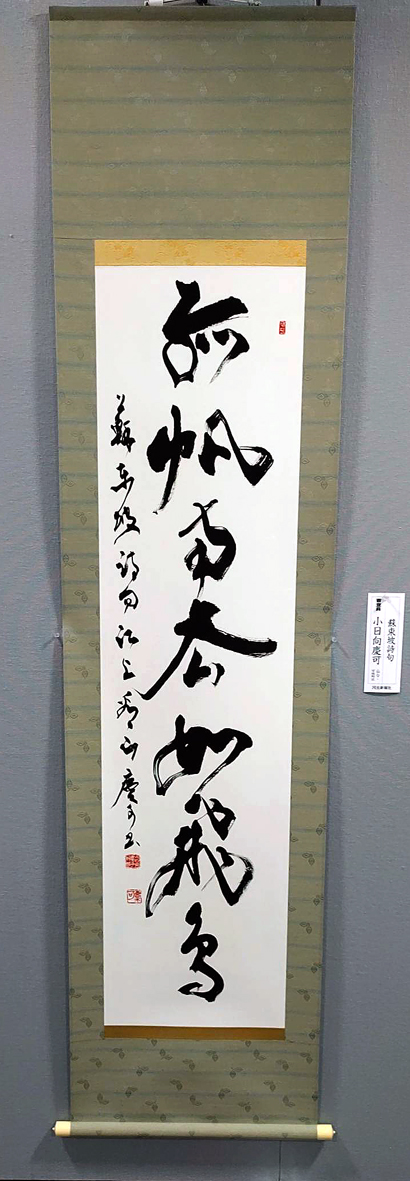 孤帆南去如飛鳥
蘇東坡詩句江上看山慶可書
蘇東坡詩句
小日向慶可
河北新報社